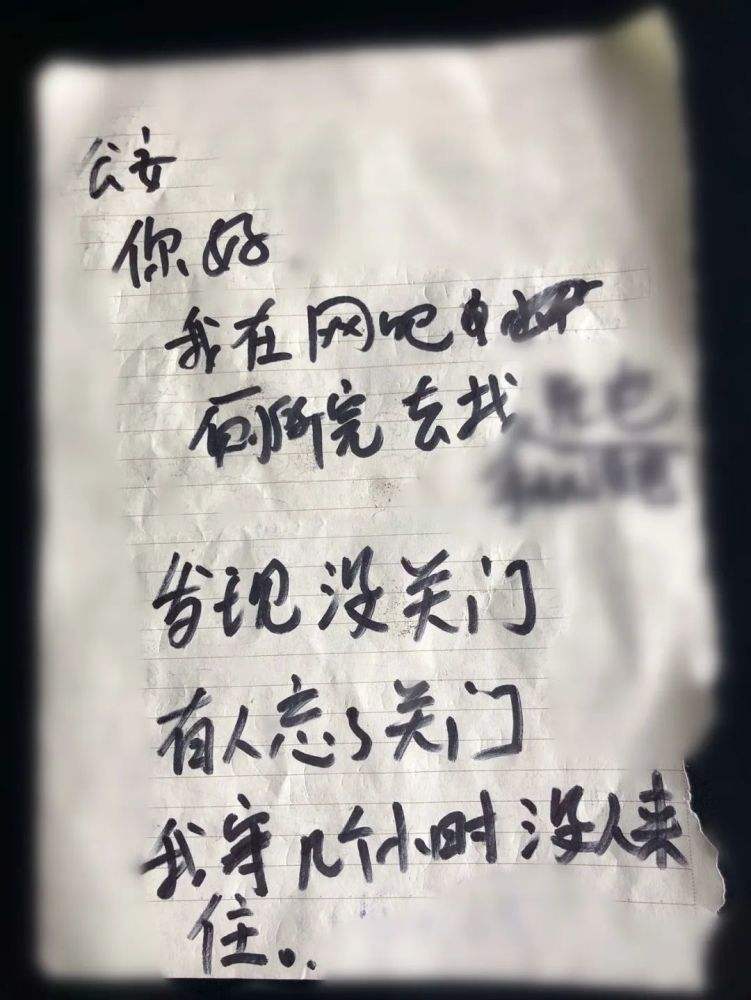 公安
你好
我在网吧
厕所完去找
发现没关门
有人忘了关门
我守几个小时没人来
住..